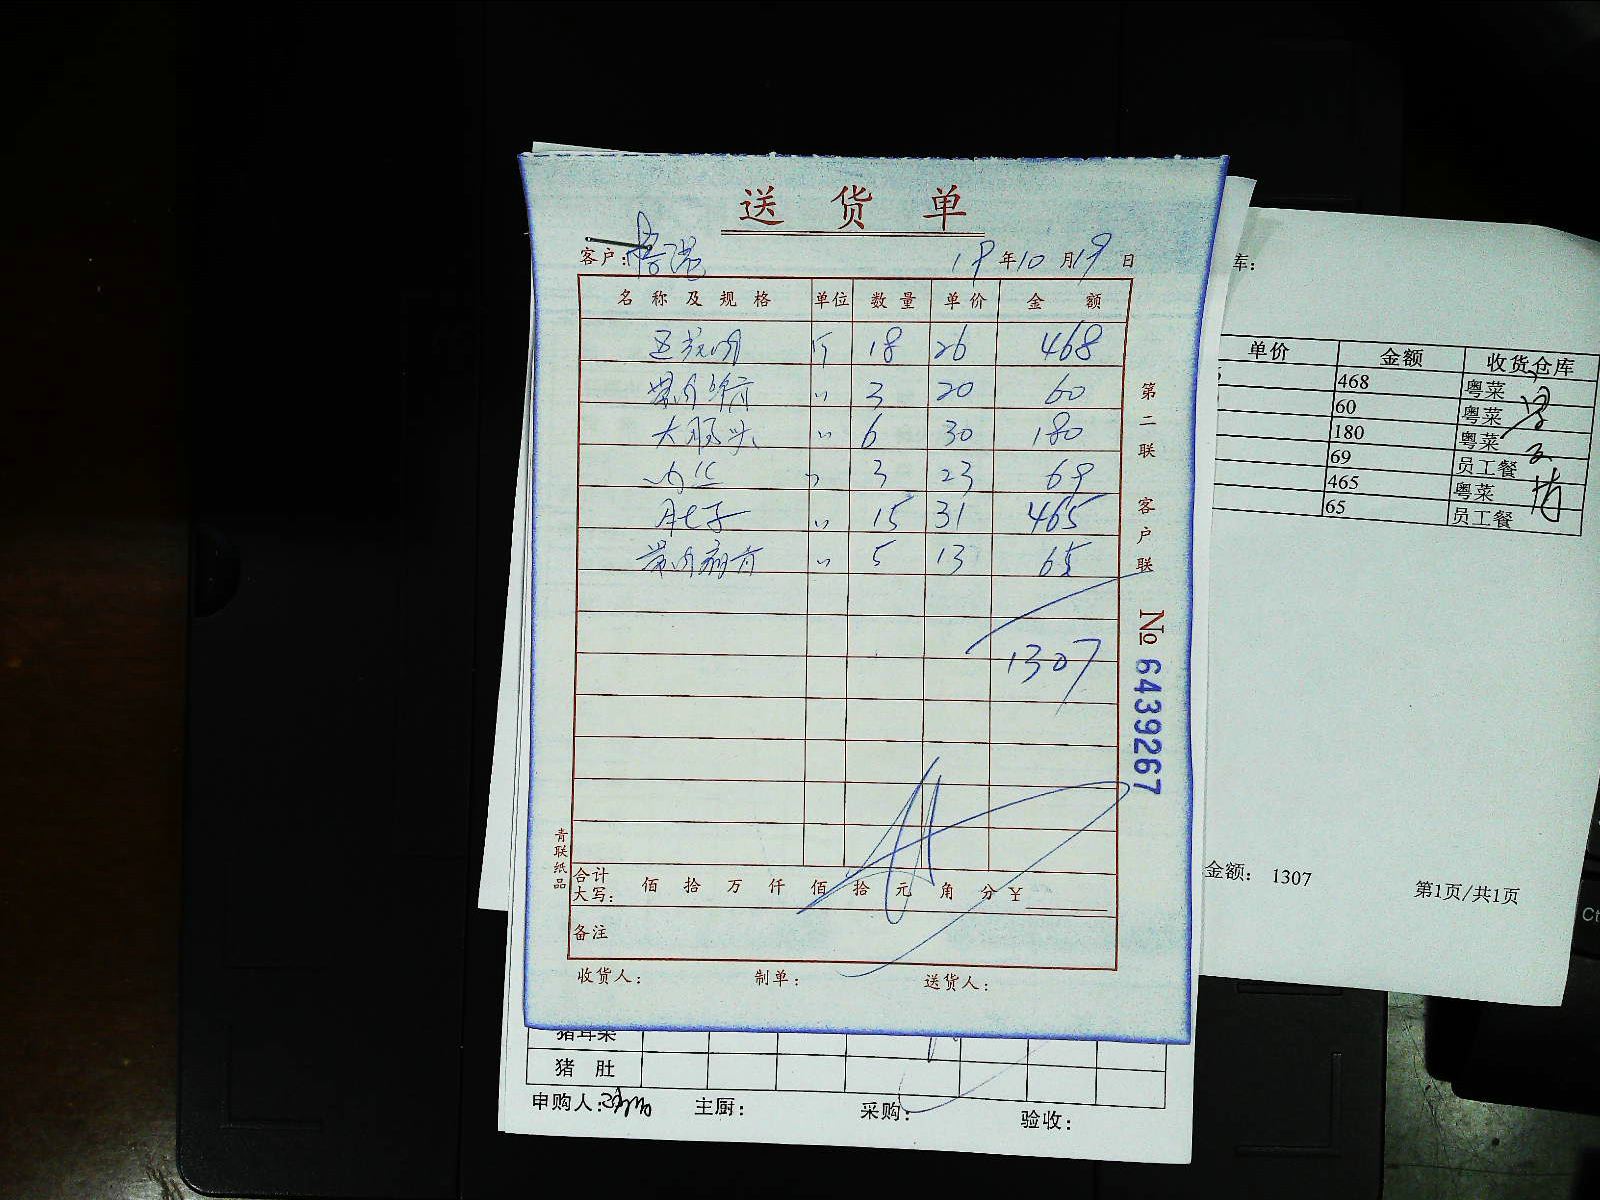 送货单
客户: 19年10月19日
名称及规格 单位 数量 单价 金额
五花肉 斤 18 26 468
带肉 〃 3 20 60
大肠头 〃 6 30 180
肉丝 〃 3 23 69
肚子 〃 15 31 465
带肉扇骨 〃 5 13 65
1307
合计大写: 佰拾万仟佰拾元角分¥
备注
收货人: 制单: 送货人:
第二联 客户联
№ 6439267
青联纸品
库:
单价 金额 收货仓库
468 粤菜
60 粤菜
180 粤菜
69 员工餐
465 粤菜
65 员工餐
金额: 1307
第1页/共1页
猪耳朵
猪肚
申购人: 主厨: 采购: 验收:
Ct